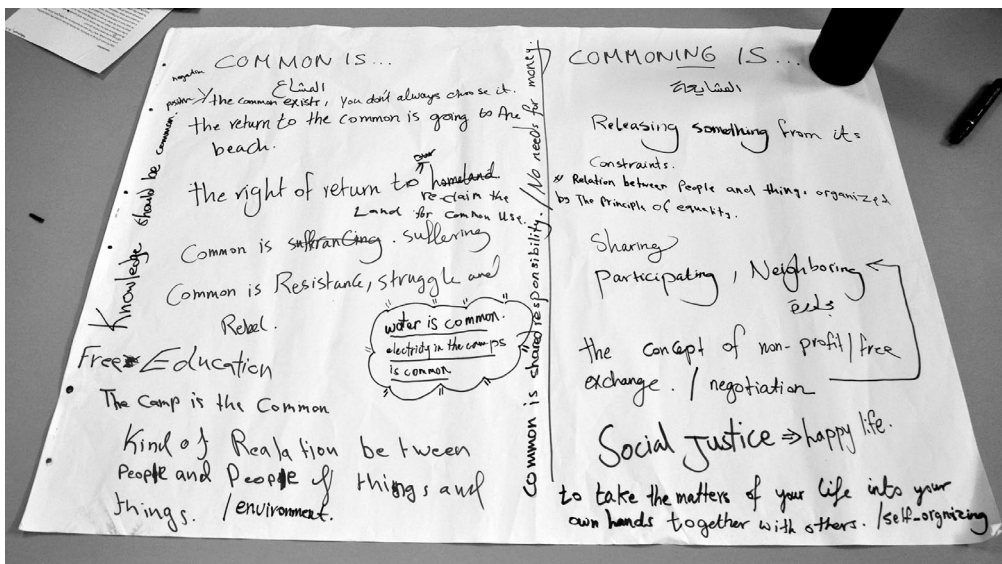 COMMON IS...
المشاع
negative
positive > the common exists, you don't always choose it.
the return to the common is going to the
beach.
the right of return to homeland
over
reclaim the
Land for common use.
Common is suffrancing. suffering
Common is Resistance, struggle and
Rebel.
water is common.
electricity in the camps
is common
Free Education
The Camp is the Common
Kind of Realation between
People and People of things and
things. /environment.
Knowledge should be common.
Common is shared responsibility. / No needs for money.
COMMONING IS...
المشايعة
Releasing something from its
Constraints.
// Relation between People and things organized
by The Principle of equality.
Sharing
Participating, Neighboring
the concept of non-profit/free
exchange. / negotiation
Social Justice ⇒ happy life.
to take the matters of your life into your
own hands together with others. /self-orgnizing